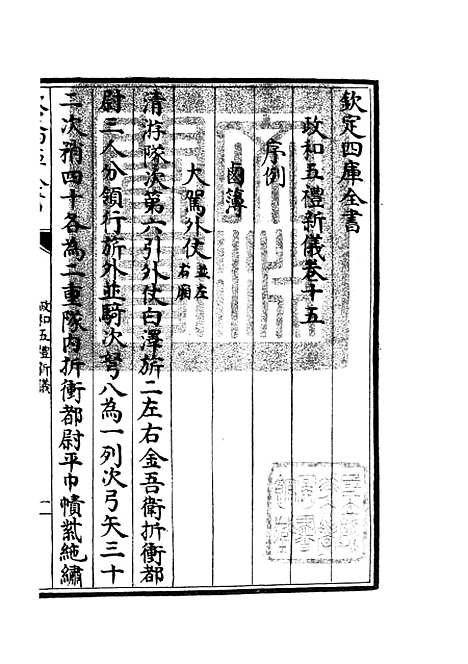 欽定四庫全書
政和五禮新儀卷十五
序例
鹵簿
大駕外仗並左右廂
清游隊次第六引外仗白澤旂二左右金吾衛折衝都
尉三人分領行旂外並騎次弩八為一列次弓矢三十
二次矟四十各為二重隊内折衝都尉平巾幘紫絁繡
政和五禮新儀
一